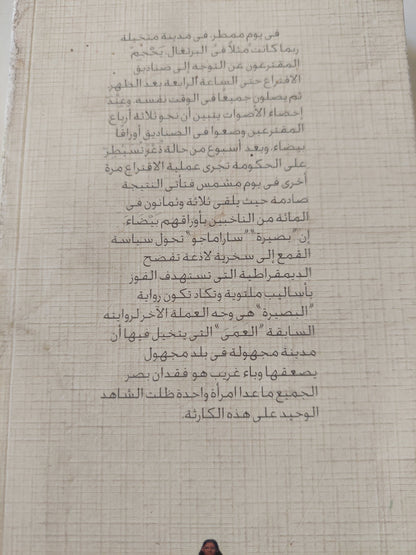 فى يوم ممطر فى مدينة متخيلة
ربما كانت مثلاً فى البرتغال، يَحْجِم
المقترعون عن التوجه إلى صناديق
الاقتراع حتى الساعة الرابعة بعد الظهر
ثم يصلون جميعًا فى الوقت نفسه، وعِنْد
إحصاء الأصوات يتبين أن نحو ثلاثة أرباع
المقترعين وضعوا فى الصناديق أوراقا
بيضاء، وبعد أسبوع من حالة ذُعْر تسيطر
على الحكومة تجرى عملية الاقتراع مرة
أخرى فى يوم مشمس فتأتى النتيجة
صادمة حيث يلقى ثلاثة وثمانون فى
المائة من الناخبين بأوراقهم بيضاء.
إن "بصيرة" "ساراماجو" تحول سياسة
القمع إلى سخرية لاذعة تفضح
الديمقراطية التى تستهدف الفوز
بأساليب ملتوية وتكاد تكون رواية
"البصيرة" هى وجه العملة الآخر لروايته
السابقة "العمى" التى يتخيل فيها أن
مدينة مجهولة فى بلد مجهول
يصعقها وباء غريب هو فقدان بصر
الجميع ما عدا امرأة واحدة ظلت الشاهد
الوحيد على هذه الكارثة.